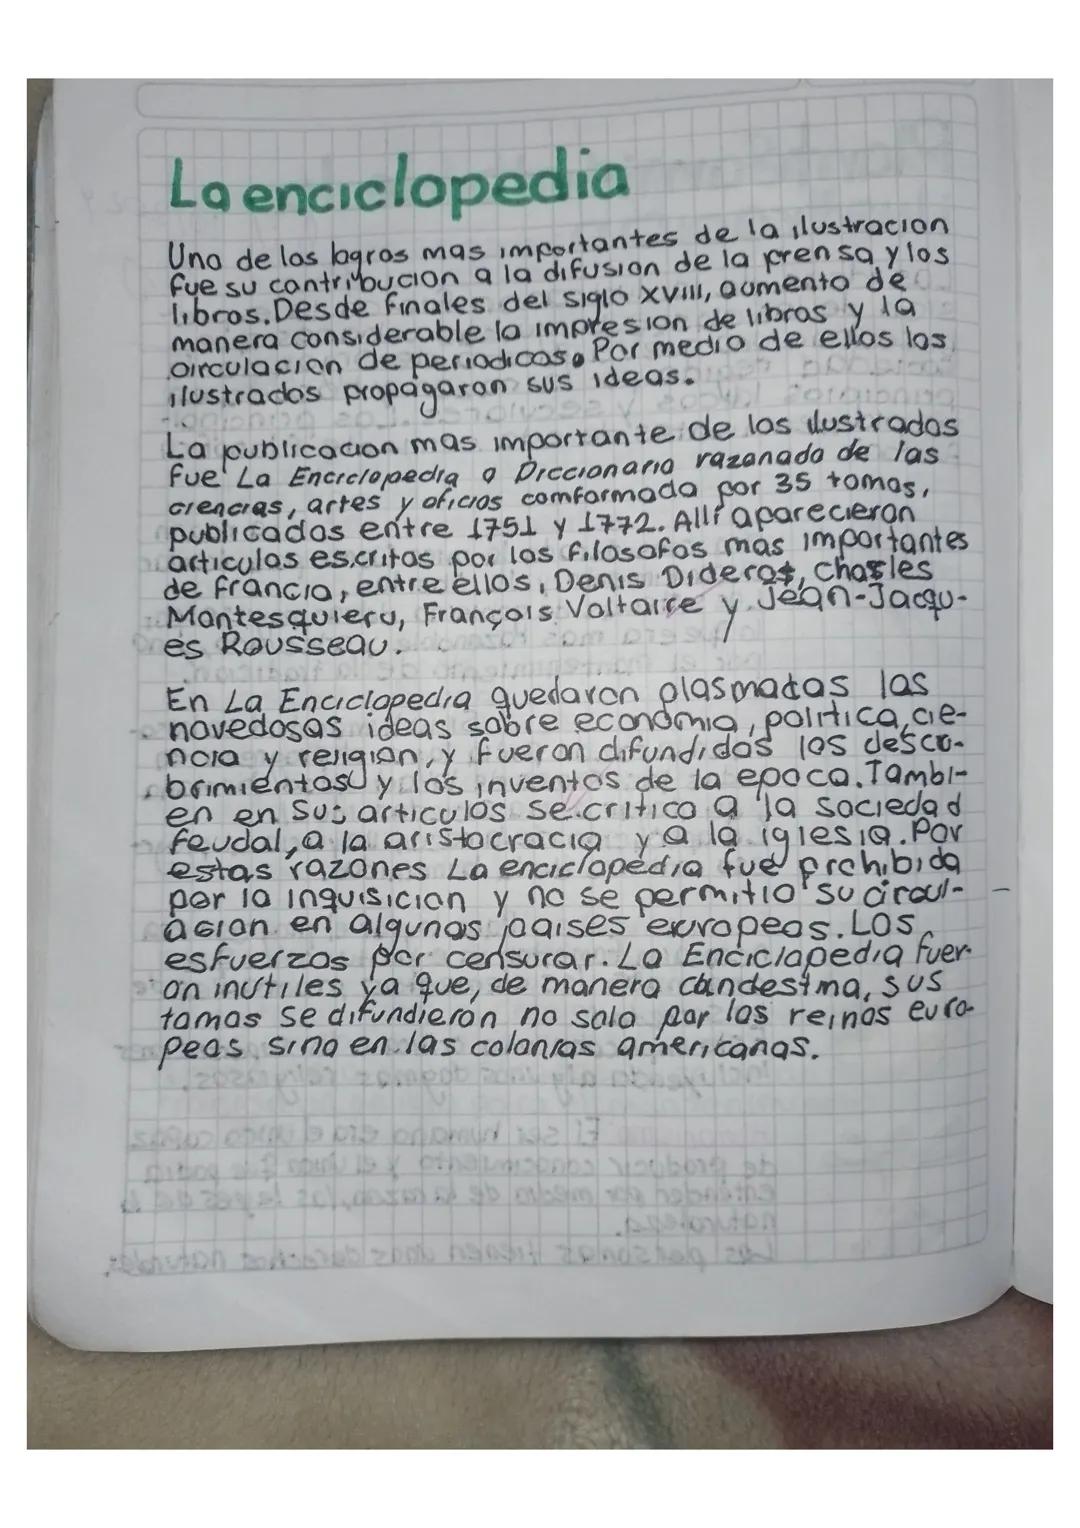 La enciclopedia
Uno de los logros mas importantes de la ilustracion
fue su contribucion a la difusion de la prensa y los
libros. Desde finales del siglo XVIII, aumento de
manera considerable la impresion de libros y la
circulacion de periodicos. Por medio de ellos los
ilustrados propagaron sus ideas.
La publicacion mas importante de los ilustrados
fue La Enciclopedia o Diccionario razonado de las
ciencias, artes y oficios comformada por 35 tomos,
publicados entre 1751 y 1772. Allí aparecieron
articulos escritos por los filosofos mas importantes
de francia, entre ellos, Denis Diderot, Charles
Montesquieru, François Voltaire y Jean-Jacqu-
es Rousseau.
En La Enciclopedia quedaron plasmadas las
novedosas ideas sobre economia, politica, cie-
ncia y religion, y fueron difundidos los descu-
brimientos y los inventos de la epoca. Tambi-
en en sus articulos se critico a la sociedad
feudal, a la aristocracia y a la iglesia. Por
estas razones La enciclopedia fue prohibida
por la inquisicion y no se permitio su circul-
acion en algunos paises europeos. Los
esfuerzos por censurar. La Enciclopedia fuer-
on inutiles ya que, de manera clandestina, sus
tomos se difundieron no solo por los reinos euro-
peos sino en las colonias americanas.